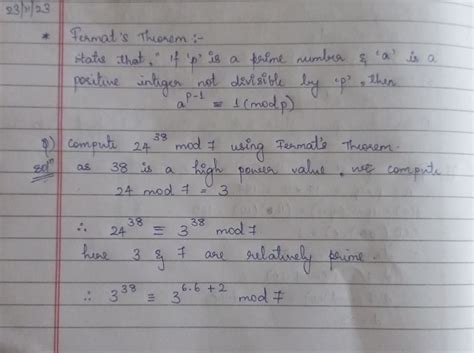 23/11/23
* Fermat's Theorem :-
states that, " if 'p' is a prime number & 'a' is a
positive integer not divisible by 'p', then
a^{p-1} ≡ 1 (mod p)
Q) Compute 24^{38} mod 7 using Fermat's Theorem.
Sol^n as 38 is a high power value, we compute
24 mod 7 = 3
∴ 24^{38} ≡ 3^{38} mod 7
here 3 & 7 are relatively prime.
∴ 3^{38} ≡ 3^{6·6+2} mod 7